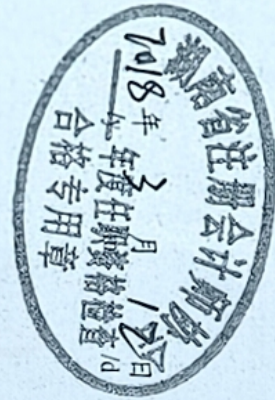 湖南省注册会计师协
2018年 3月 日
年度任职资格检查 /d
合格专用章